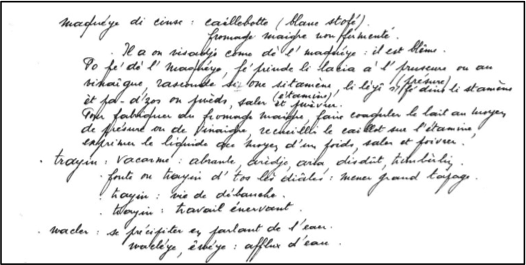 maquéye di cinse : caillebotte (blanc stofé).
fromage maigre non fermenté.
. Il a on visadje come dè l' maquéye : il est blême.
Po fé dè l' maquéye, fé prinde li lacia à l' pruseure ou au
vinaigue, rasconde si one sitamène, li lèyî (présure)
èt pa-d'zos on pwèds, saler èt pwèvrer. (étamine)
Pour fabriquer du fromage maigre, faire coaguler le lait au moyen
de présure ou de vinaigre, recueillir le caillot sur l'étamine,
exprimer le liquide au moyen d'un poids, saler et poivrer.
. trayin : vacarme : abranle, aria disdut,
fonts on trayin d' tos les diâles : mener grand tapage.
. trayin : vie de débauche.
. trayin : travail énervant.
. wacler : se précipiter en parlant de l'eau.
waclèye, èwèye : afflux d'eau.